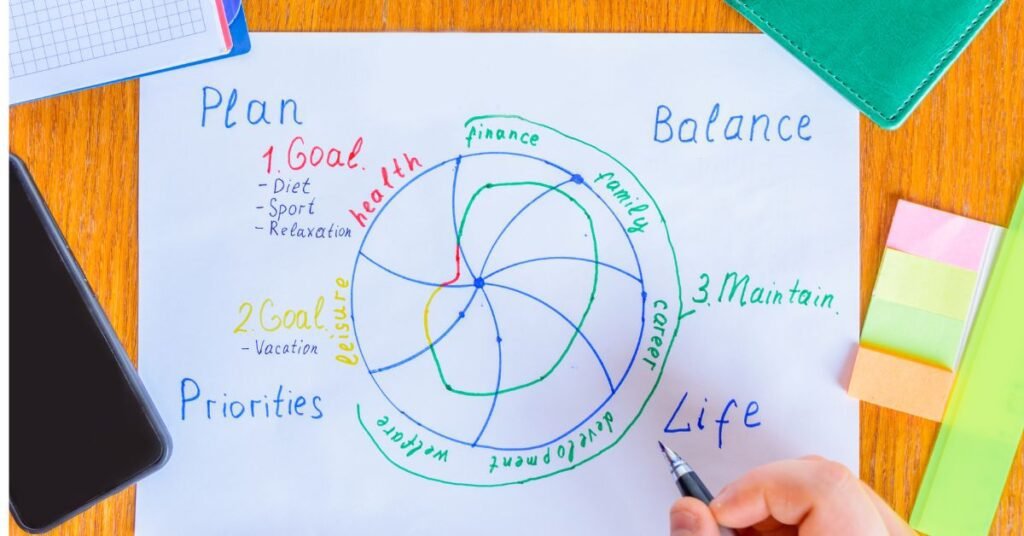 Plan
1. Goal.
- Diet
- Sport
- Relaxation
health
finance
Balance
family
2. Goal.
- Vacation
leisure
career
3. Maintain.
Priorities
welfare
development
Life